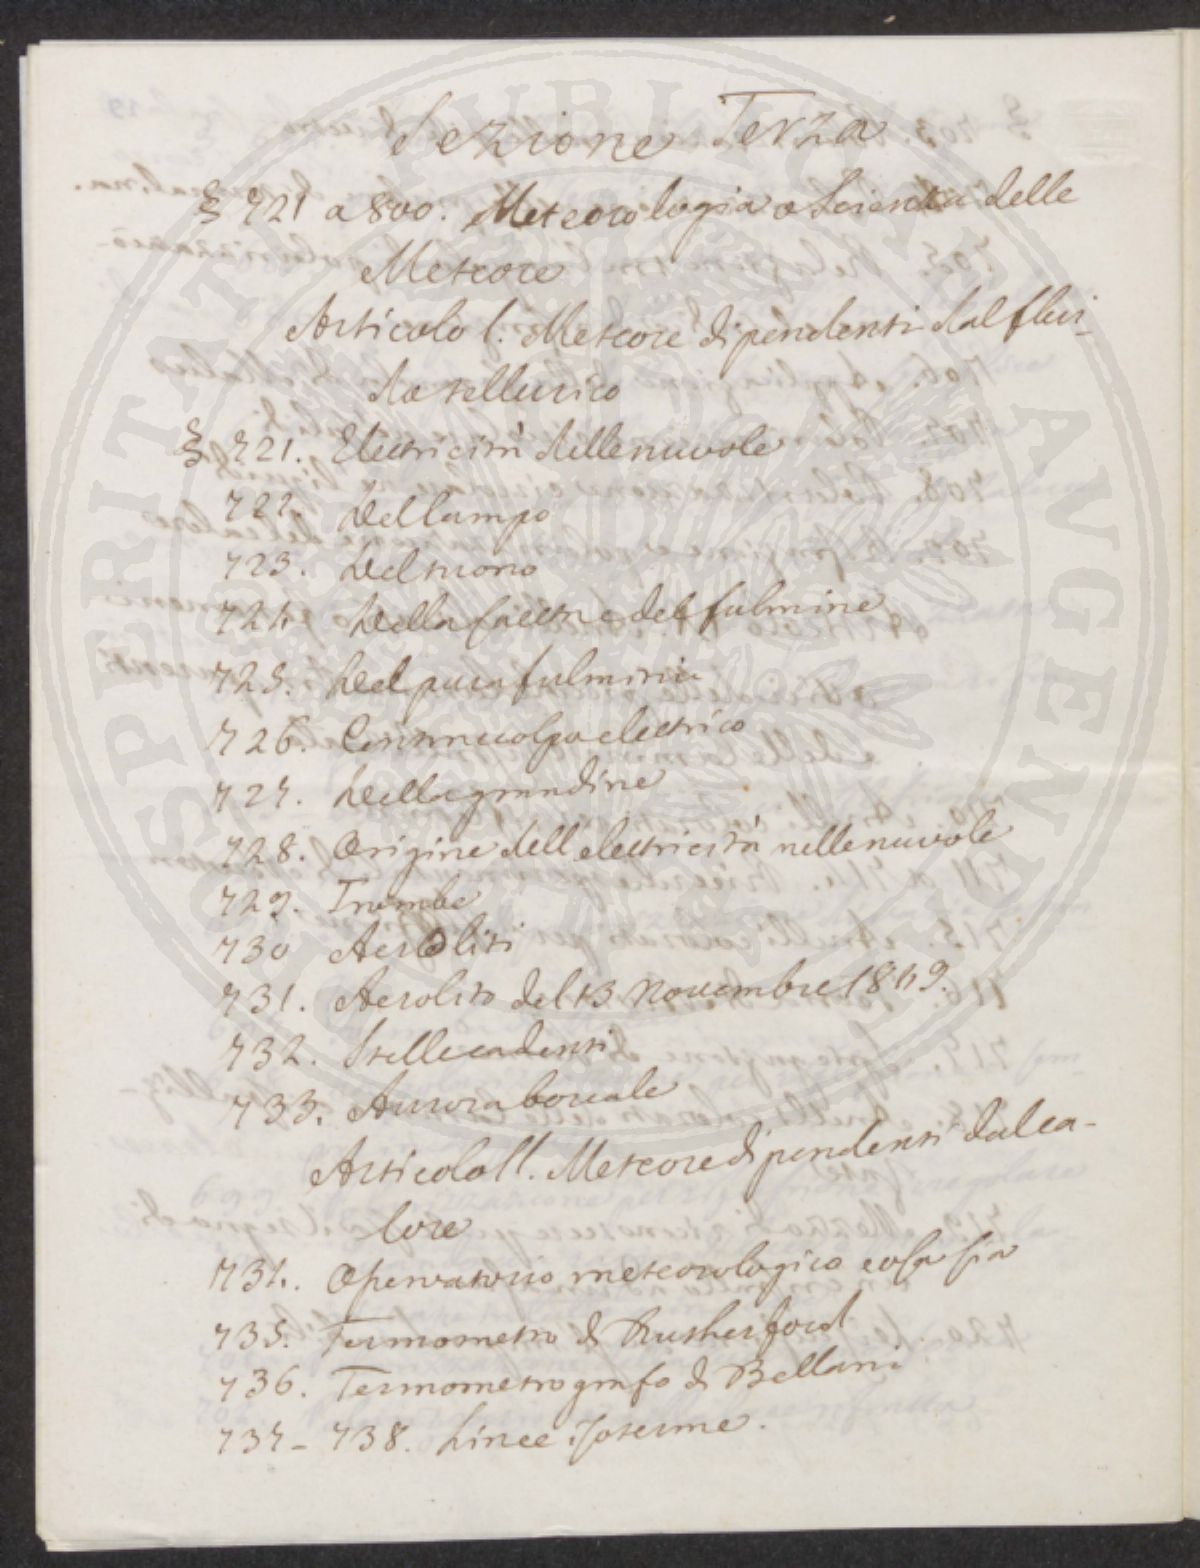 Sezione Terza
§ 721 a 800. Meteorologia o Scienza delle
Meteore
Articolo I. Meteore dipendenti dal flui-
do tellurico
§ 721. Elettricità delle nuvole
722. Del lampo
723. Del tuono
724. Della saetta e del fulmine
725. Del para fulmini
726. Contraccolpo elettrico
727. Della grandine
728. Origine dell elettricità nelle nuvole
729. Trombe
730 Aeroliti
731. Aerolito del 13 Novembre 1849.
732. Stelle cadenti
733. Aurora boreale
Articolo II. Meteore dipendenti dal ca-
lore
734. Osservatorio meteorologico cosa sia
735. Termometro di Rutherford
736. Termometrografo di Bellani
737 - 738. Linee Isoterme.
PROSPERITATI PUBLICAE AUGENDAE